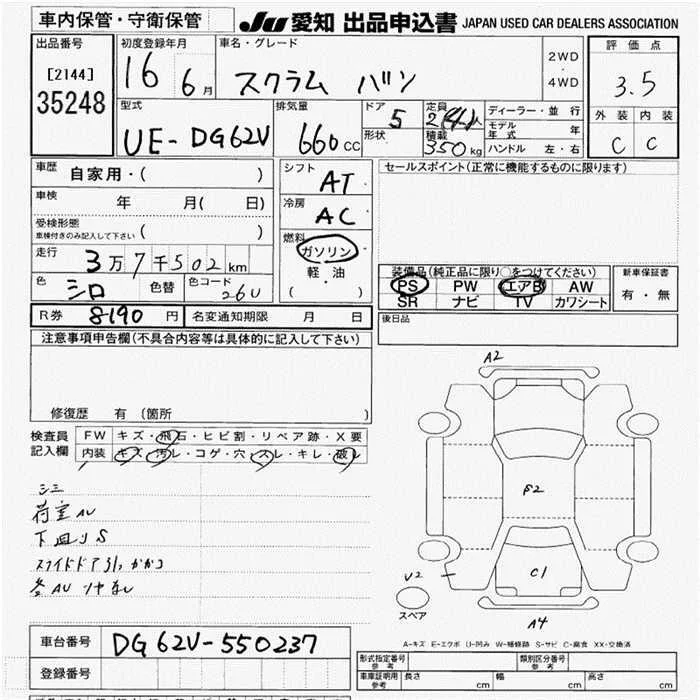 車内保管・守衛保管
JU 愛知 出品申込書 JAPAN USED CAR DEALERS ASSOCIATION
出品番号
[2144]
35248
初度登録年月
16 6月
車名・グレード
スクラム バン
2WD
・
4WD
評価点
3.5
外装 内装
C C
型式
UE-DG62V
排気量
660 CC
ドア
5
形状
定員
2(4)人
積載
350 kg
ディーラー・並行
モデル年式 年
ハンドル 左・右
車歴
自家用・( )
車検
年 月( 日)
受検形態
車検付きのみ記入して下さい ( )
走行
3万7千502km
色
シロ
色替
色コード
26U
シフト
AT
冷房
AC
燃料
ガソリン
軽油
( )
セールスポイント(正常に機能するものに限ります)
装備品(純正品に限り○をつけてください)
PS PW エアB AW
SR ナビ TV カワシート
新車保証書
有・無
R券 8190 円
名変通知期限 月 日
後日品
注意事項申告欄(不具合内容等は具体的に記入して下さい)
修復歴 有(箇所 )
検査員
記入欄
FW キズ・飛石・ヒビ割・リペア跡・X要
内装 キズ・汚レ・コゲ・穴・スレ・キレ・破レ
荷室AU
下回りS
A2
S2
C1
U2
スペア
A4
A-キズ E-エクボ U-凹み W-補修跡 S-サビ C-腐食 XX-交換済
車台番号
DG62V-550237
登録番号
形式指定番号
参考
類別区分番号
参考
車庫証明用
参考
長さ cm 幅 cm 高さ cm